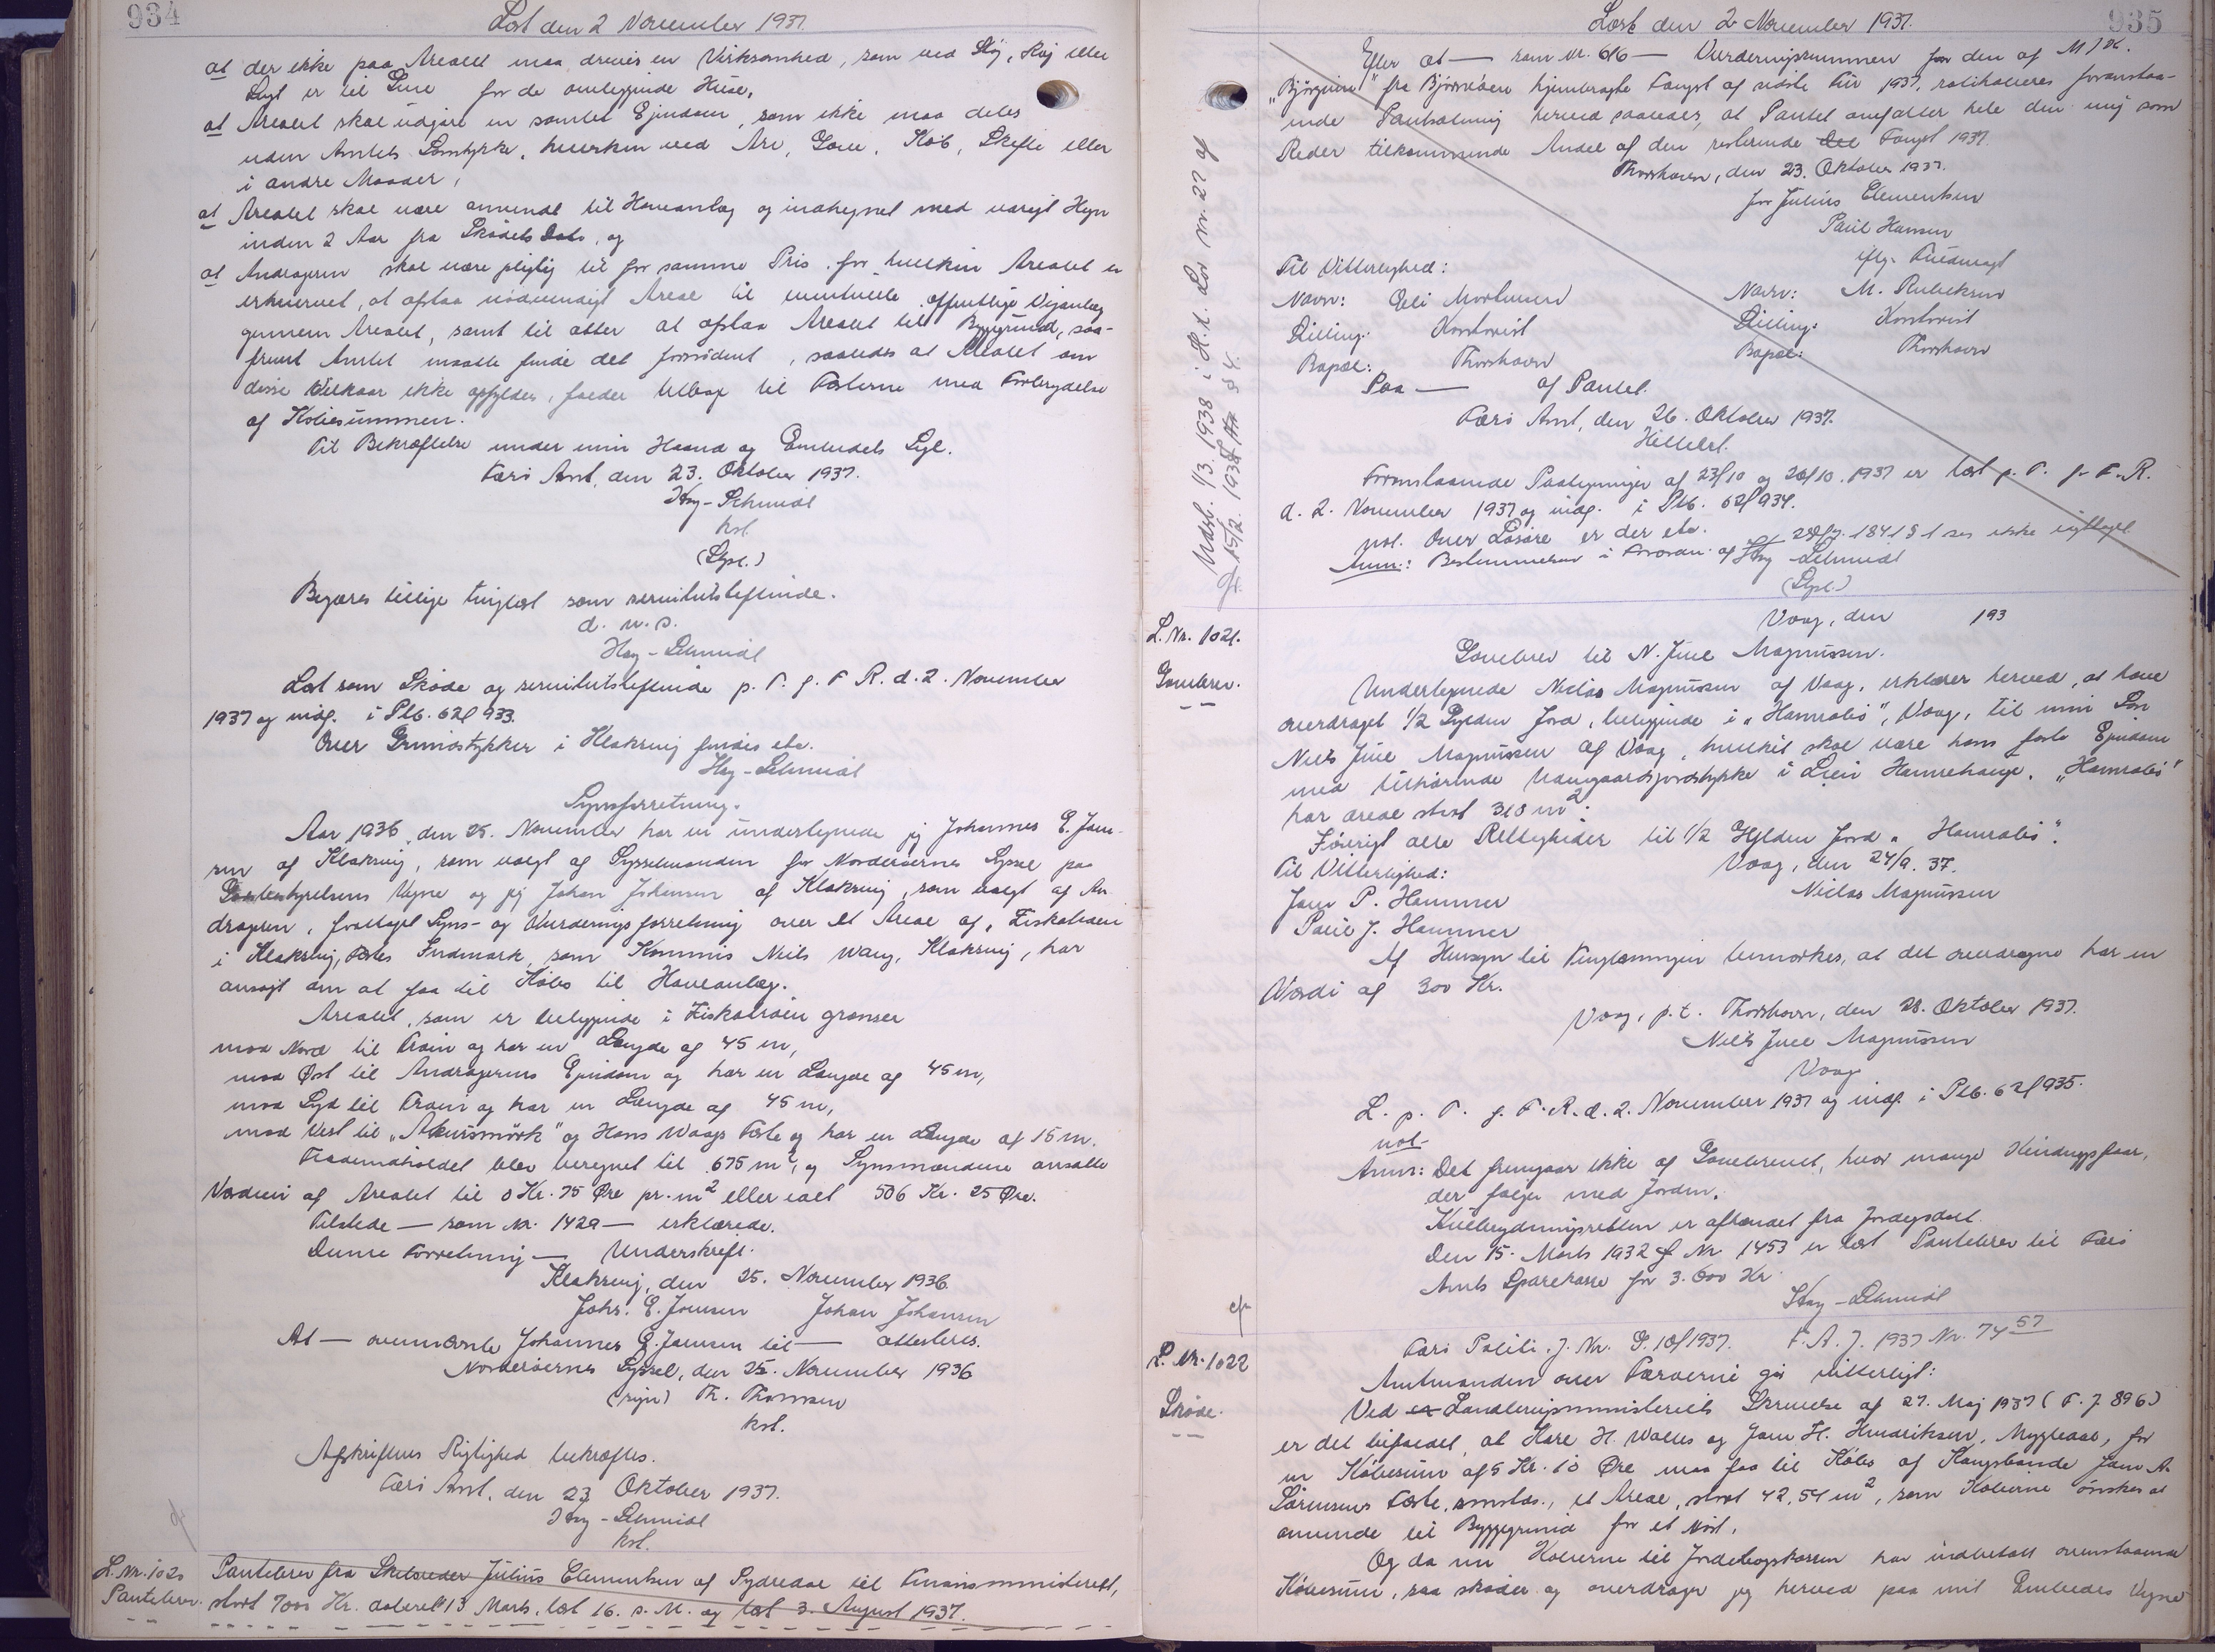 934
Læst den 2 November 1937.
at der ikke paa Arealet maa drives en Virksomhed, som ved Støj, Røg eller
Lugt er til Gene for de omliggende Huse,
at Arealet skal udgøre en samlet Ejendom, som ikke maa deles
uden Amtets Samtykke, hverken ved Arv, Gave, Køb, Skifte eller
i andre Maader,
at Arealet skal være anvendt til Haveanlæg og indhegnet med varigt Hegn
inden 2 Aar fra Skødets Dato, og
at Andrageren skal være pligtig til for samme Pris, for hvilken Arealet er
erhvervet, at afstaa nødvendigt Areal til eventuelle offentlige Vejanlæg
gennem Arealet, samt til atter at afstaa Arealet til Byggegrund, saa-
fremt Amtet maatte finde det fornødent, saaledes at Arealet om
disse Vilkaar ikke opfyldes, falder tilbage til Fæsterne med Fortrydelse
af Købesummen.
Til Bekræftelse under min Haand og Embedets Segl.
Færø Amt, den 23. Oktober 1937.
Hay-Schmidt
kst.
(Sgl.)
Begæres tillige tinglæst som servitutstiftende.
d. u. s.
Hay-Schmidt
Læst som Skøde og servitutstiftende p. T. f. F. R. d. 2. November
1937 og indf. i Ptb. 62f 933.
Over Grundstykker i Klaksvig findes etc.
Hay-Schmidt
Synsforretning.
Aar 1936, den 25. November har vi undertegnede jeg Johannes E. Joen-
sen af Klaksvig, som valgt af Sysselmanden for Norderøernes Syssel paa
Landbestyrelsens Vegne og jeg Johan Johansen af Klaksvig, som valgt af An-
drageren, foretaget Syns- og Vurderingsforretning over et Areal af "Fiskatrøen
i Klaksvig, Fæstes Indmark, som Kommis Niels Waag, Klaksvig, har
ansøgt om at faa til Købs til Haveanlæg.
Arealet, som er beliggende i Fiskatrøen grænser
mod Nord til Trøen og har en Længde af 45 m,
mod Øst til Andragerens Ejendom og har en Længde af 45 m,
mod Syd til Trøen og har en Længde af 45 m,
mod Vest til "Akursmørk" og Hans Waags Fæste og har en Længde af 15 m.
Fladeindholdet blev beregnet til 675 m², og Synsmændene ansatte
Værdien af Arealet til 0 Kr. 75 Øre pr. m² eller ialt 506 Kr. 25 Øre.
Tilstede — som Nr. 1429 — erklærede.
Denne Forretning — Underskrift.
Klaksvig, den 25. November 1936.
Johs. E. Joensen Johan Johansen
At — ovennævnte Johannes E. Joensen til — attesteres.
Norderøernes Syssel, den 25. November 1936
(sign) Th. Thomsen
kst.
Afskriftens Rigtighed bekræftes.
Færø Amt, den 23 Oktober 1937.
Hay-Schmidt
kst.
L. Nr. 1020 Pantebrev fra Skibsreder Julius Clementsen af Sydredal til Finansministeriet,
Pantebrev. stort 7000 Kr. dateret 13 Marts, læst 16. s. M. og læst 3. August 1937.
935
Læst den 2 November 1937.
Efter at — som Nr. 616 — Vurderingssummen for den af M/Sk.
"Bjørgvin" fra Bjørnøen hjembragte Fangst af sidste Tur 1937, ratihaberes foranstaa-
ende Pantsætning herved saaledes, at Pantet omfatter hele den mig som
Reder tilkommende Andel af den resterende Del Fangst 1937.
Thorshavn, den 23. Oktober 1937.
for Julius Clementsen
Paul Hansen
iflg. Fuldmagt
Til Vitterlighed:
Navn: Elli Mortensen Navn: M. Rubeksen
Stilling: Kontorist Stilling: Kontorist
Bopæl: Thorshavn Bopæl: Thorshavn
Paa — af Pantet.
Færø Amt, den 26. Oktober 1937.
Hilbert.
Foranstaaende Paategninger af 23/10 og 26/10. 1937 er læst p. T. f. F. R.
d. 2. November 1937 og indf. i Ptb. 62f 934.
not. Over Løsøre er der etc.
Anm.: Bestemmelsen i Forordn. af 28/7. 1841 § 1 ses ikke iagttaget
Hay-Schmidt
(Sgl.)
Udsl. 1/3. 1938 i H. t. Lov nr. 27 af
15/2. 1938 § 4.
L. Nr. 1021.
Gavebrev.
Vaag, den 193
Gavebrev til N. Juul Magnussen.
Undertegnede Niclas Magnussen af Vaag, erklærer herved, at have
overdraget 1/2 Gylden Jord, beliggende i "Hamrabø", Vaag, til min Søn
Niels Juul Magnussen af Vaag, hvilket skal være hans faste Ejendom
med tilhørende Udengaardsjordstykke i Leiti Hamrehauge. "Hamrabø"
har areal stort 318 m².
Føvrigt alle Rettigheder til 1/2 Gylden Jord "Hamrabø".
Til Vitterlighed: Vaag, den 24/9. 37.
Joen P. Hammer Niclas Magnussen
Paul J. Hammer
Af Hensyn til Tinglæsningen bemærkes, at det overdragne har en
Værdi af 300 Kr.
Vaag, p.t. Thorshavn, den 28. Oktober 1937.
Niels Juul Magnussen
Vaag
L. p. T. f. F. R. d. 2. November 1937 og indf. i Ptb. 62f 935.
not.
Anm: Det fremgaar ikke af Gavebrevet, hvor mange
der følger med Jorden.
Kulbrydningsretten er afhændet fra Jordegodset.
Den 15. Marts 1932 Nr 1453 er læst Pantebrev til Færø
Amts Sparekasse for 3.600 Kr.
Hay-Schmidt
L. Nr. 1022
Skøde.
Færø Politi. J. Nr. G. 10/1937. F. A. J. 1937 Nr. 74 57
Amtmanden over Færøerne gør vitterligt:
Ved Landbrugsministeriets Skrivelse af 27. Maj 1937 (F. J 896)
er det bifaldet, at Hare H. Walles og Joen H. Hendriksen, Mygledal, for
en Købesum af 5 Kr. 10 Øre maa faa til Købs af Kongsbonde Joen A.
Sørensens Fæste, smstds., et Areal, stort 42,54 m², som Køberne ønskes at
anvende til Byggegrund for et Nøst.
Og da nu Køberne til Jordebogskassen har indbetalt ovenstaaende
Købesum, saa skøder og overdrager jeg herved paa mit Embedes Vegne